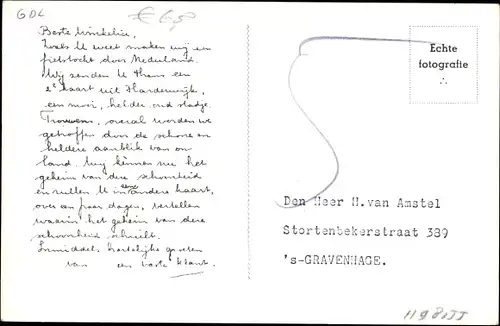 GDL
€ 6,5
Beste Winkelier,
zoals U weet maken wij een
fietstocht door Nederland.
Wij zenden U thans een
2e kaart uit Harderwijk,
een mooi, helder oud stadje.
Trouwens, overal worden we
getroffen door de schone en
heldere aanblik van ons
land. Wij kennen nu het
geheim van deze schoonheid
en zullen U in een andere kaart,
over een paar dagen, vertellen
waarin het geheim van deze
schoonheid schuilt.
Inmiddels hartelijke groeten
van een vaste klant.
Echte
fotografie
Den Heer H.van Amstel
Stortenbekerstraat 389
's-GRAVENHAGE.